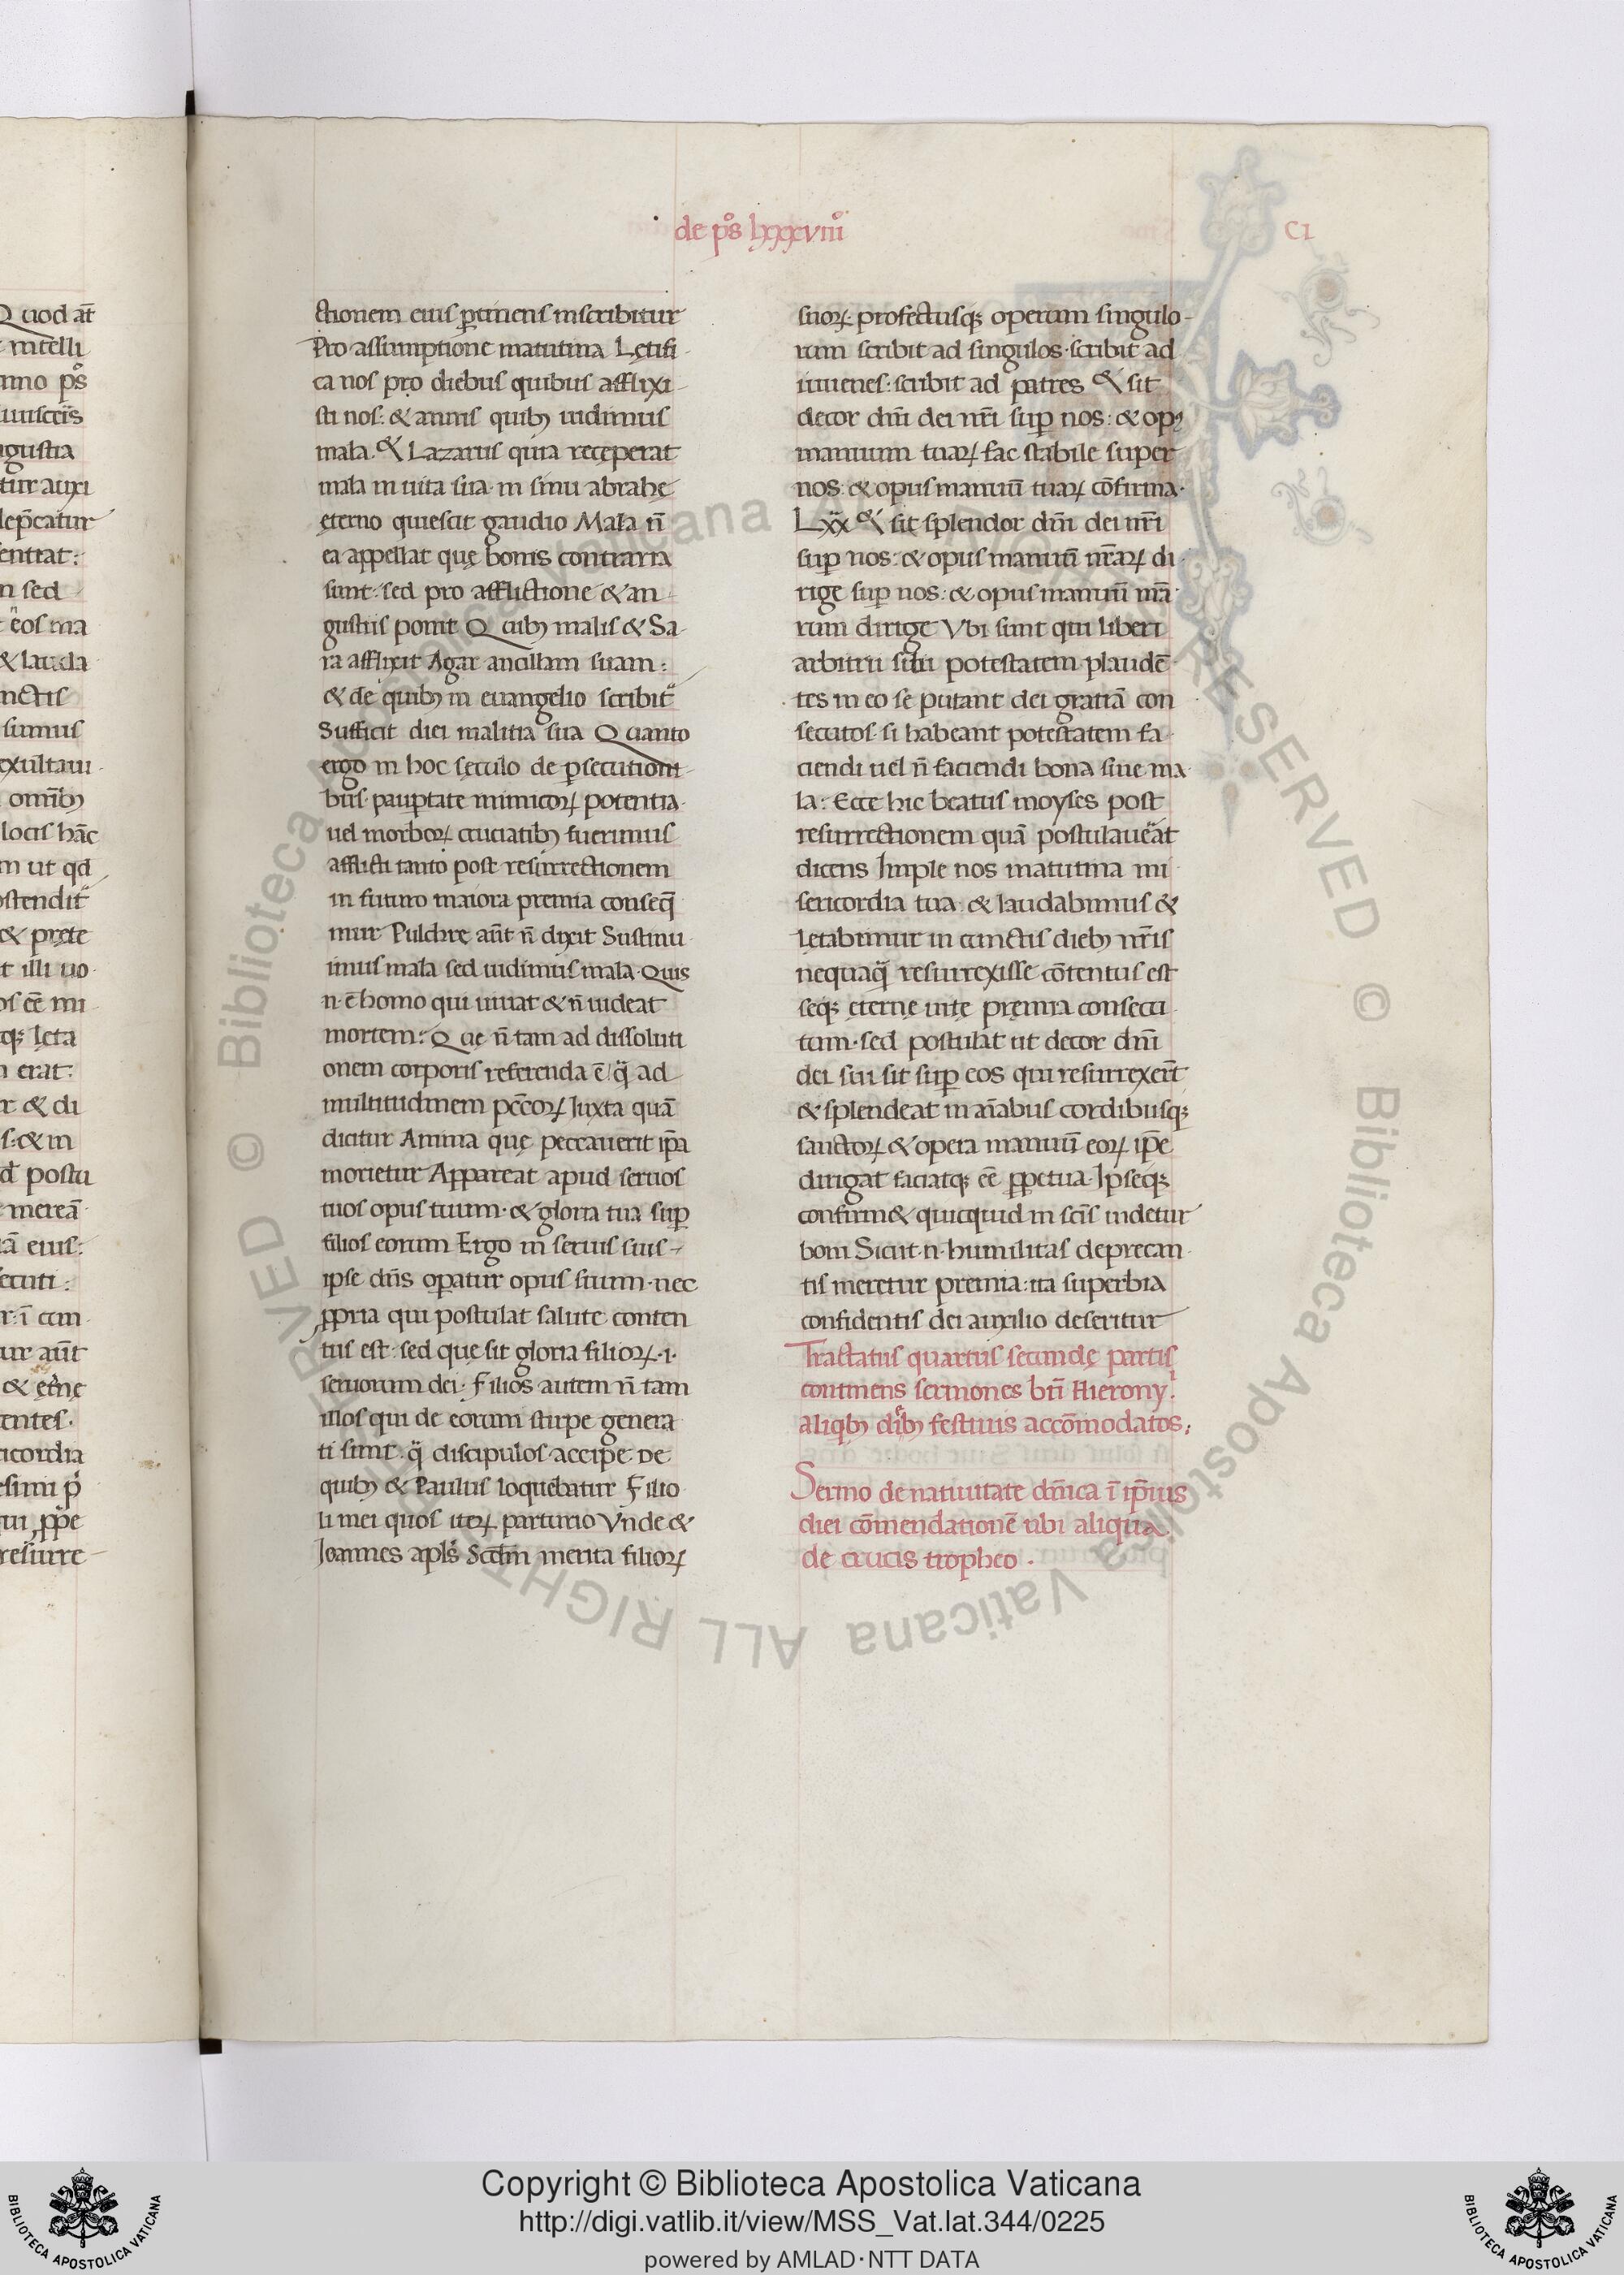 de ps̊ lxxxviiiͦ
CI
ctionem eius ꝑtinens inscribitur
Pro assumptione matutina Lętifi-
ca nos pro diebus quibus afflixi-
sti nos: & annis quibꝫ uidimus
mala. & Lazarus quia recęperat
mala in uita sua in sinu abrahę
ęterno quiescit gaudio Mala n̄
ea appellat quę bonis contraria
sunt: sed pro afflictione & an-
gustiis ponit Quibꝫ malis & Sa-
ra afflixit Agar ancillam suam:
& de quibꝫ in euangelio scribit᷑
Sufficit diei malitia sua Quanto
ergo in hoc sęculo de ꝑsecutioni-
bus pauꝑtate inimicoꝝ potentia
uel morboꝝ cruciatibꝫ fuerimus
afflicti tanto post resurrectionem
in futuro maiora premia conseq̄
mur Pulchre aūt n̄ dixit Sustinu
imus mala sed uidimus mala. Quis
n. ē homo qui uiuat & n̄ uideat
mortem: Quę n̄ tam ad dissoluti
onem corporis referenda ē q̄ ad
multitudinem pc̄coꝝ Iuxta quā
dicitur Anima quę peccauerit ip̄a
morietur Appareat apud seruos
tuos opus tuum. & gloria tua suꝑ
filios eorum Ergo in seruis suis
ipse dn̄s oꝑatur opus suum. nec
ꝓpria qui postulat salute conten
tus est: sed que sit gloria filioꝝ .i.
seruorum dei. Filios autem n̄ tam
illos qui de eorum stirpe genera
ti sunt. q̄ discipulos accipe De
quibꝫ & Paulus loquebatur Filio
li mei quos iteꝝ parturio Vnde &
Ioannes apl̄s Scd̄m merita filioꝝ
suoꝝ profectusqꝫ operum singulo-
rum scribit ad singulos. scribit ad
iuuenes: scribit ad patres & sit
decor dn̄i dei nr̄i suꝑ nos: & opꝰ
manuum tuaꝝ fac stabile super
nos: & opus manuū tuaꝝ cōfirma.
Lxx & sit splendor dn̄i dei nr̄i
suꝑ nos: & opus manuū nr̄aꝝ di
rige suꝑ nos: & opus manuū nr̄a
rum dirige Vbi sunt qui liberi
arbitrii sibi potestatem plaudē
tes in eo se putant dei gratiā con
secutos. si habeant potestatem fa-
ciendi uel n̄ faciendi bona siue ma
la: Ecce hic beatus moyses post
resurrectionem quā postulauēat
dicens Imple nos matutina mi
sericordia tua: & laudabimus &
lętabimur in cunctis diebꝫ nr̄is
nequaq̄ resurrexisse cōtentus est
seqꝫ ęternę uitę pręmia consecu
tum. sed postulat ut decor dn̄i
dei sui sit suꝑ eos qui resurrexer̄t
& splendeat in aīabus cordibusqꝫ
sanctoꝝ & opera manuū eoꝝ ip̄e
dirigat faciatqꝫ eē ꝑpetua. Ipseqꝫ
confirm& quicquid in scīs uidetur
boni Sicut .n. humilitas deprecan
tis meretur premia: ita superbia
confidentis dei auxilio deseritur
Tractatus quartus secundę partis
continens sermones bt̄i Hierony.ⁱ
aliqbꝫ diēbꝫ festiuis accōmodatos;
Sermo de natiuitate dn̄ica ī ip̄ius
diei cōmendationē ubi aliqua
de crucis tropheo .
© Biblioteca Apostolica Vaticana ALL RIGHTS RESERVED
© Biblioteca Apostolica Vaticana ALL RIGHTS RESERVED
Copyright © Biblioteca Apostolica Vaticana
http://digi.vatlib.it/view/MSS_Vat.lat.344/0225
powered by AMLAD·NTT DATA
BIBLIOTECA APOSTOLICA VATICANA
BIBLIOTECA APOSTOLICA VATICANA